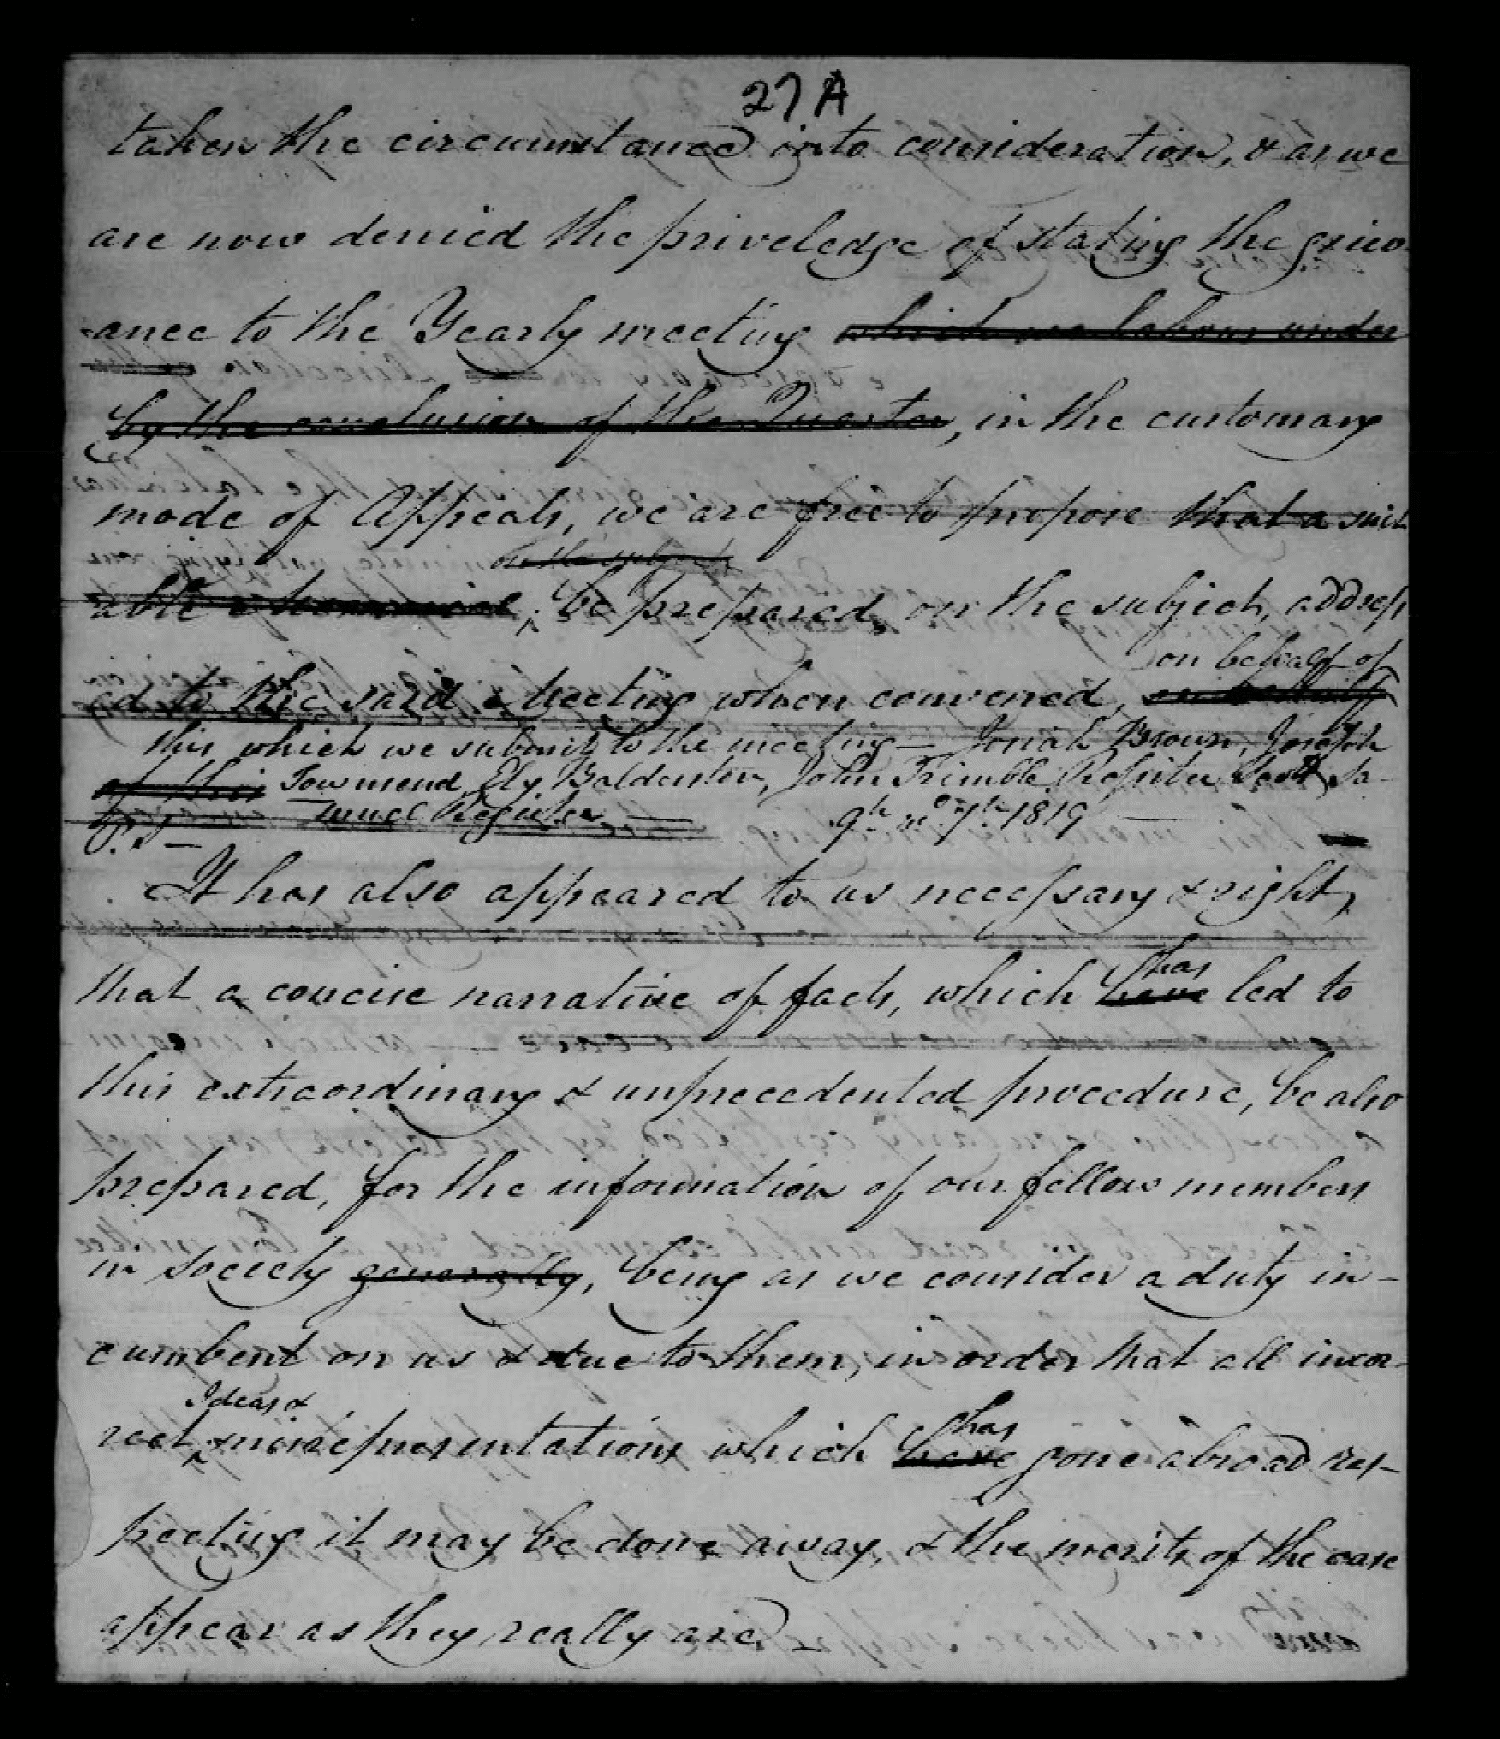 27 A
taken the circumstance into consideration, & as we
are now denied the priveledge of stating the griev-
-ance to the Yearly meeting which we labour under
by the conclusion of the Quarter, in the customary
mode of Appeals, we are free to propose that a suit
on the subject
able be prepared, on the subject, address
on behalf of
ed to the said Meeting when convened, on behalf
this which we submit to the meeting — Jonah Brown, Joseph
of this Townsend, Ely Balderston, John Trimble, Rossiter Scott, Sa-
-muel Register — 9th mo 7th 1819 —
P. S —
It has also appeared to us necessary & right,
that a concise narrative of facts, which have has led to
this extraordinary & unprecedented procedure, be also
prepared, for the information of our fellow members
in society generally, being as we consider a duty in-
cumbent on us & due to them, in order that all incor-
Ideas &
rect misrepresentations which have has gone abroad res-
pecting it may be done away, & the merits of the case
appear as they really are —